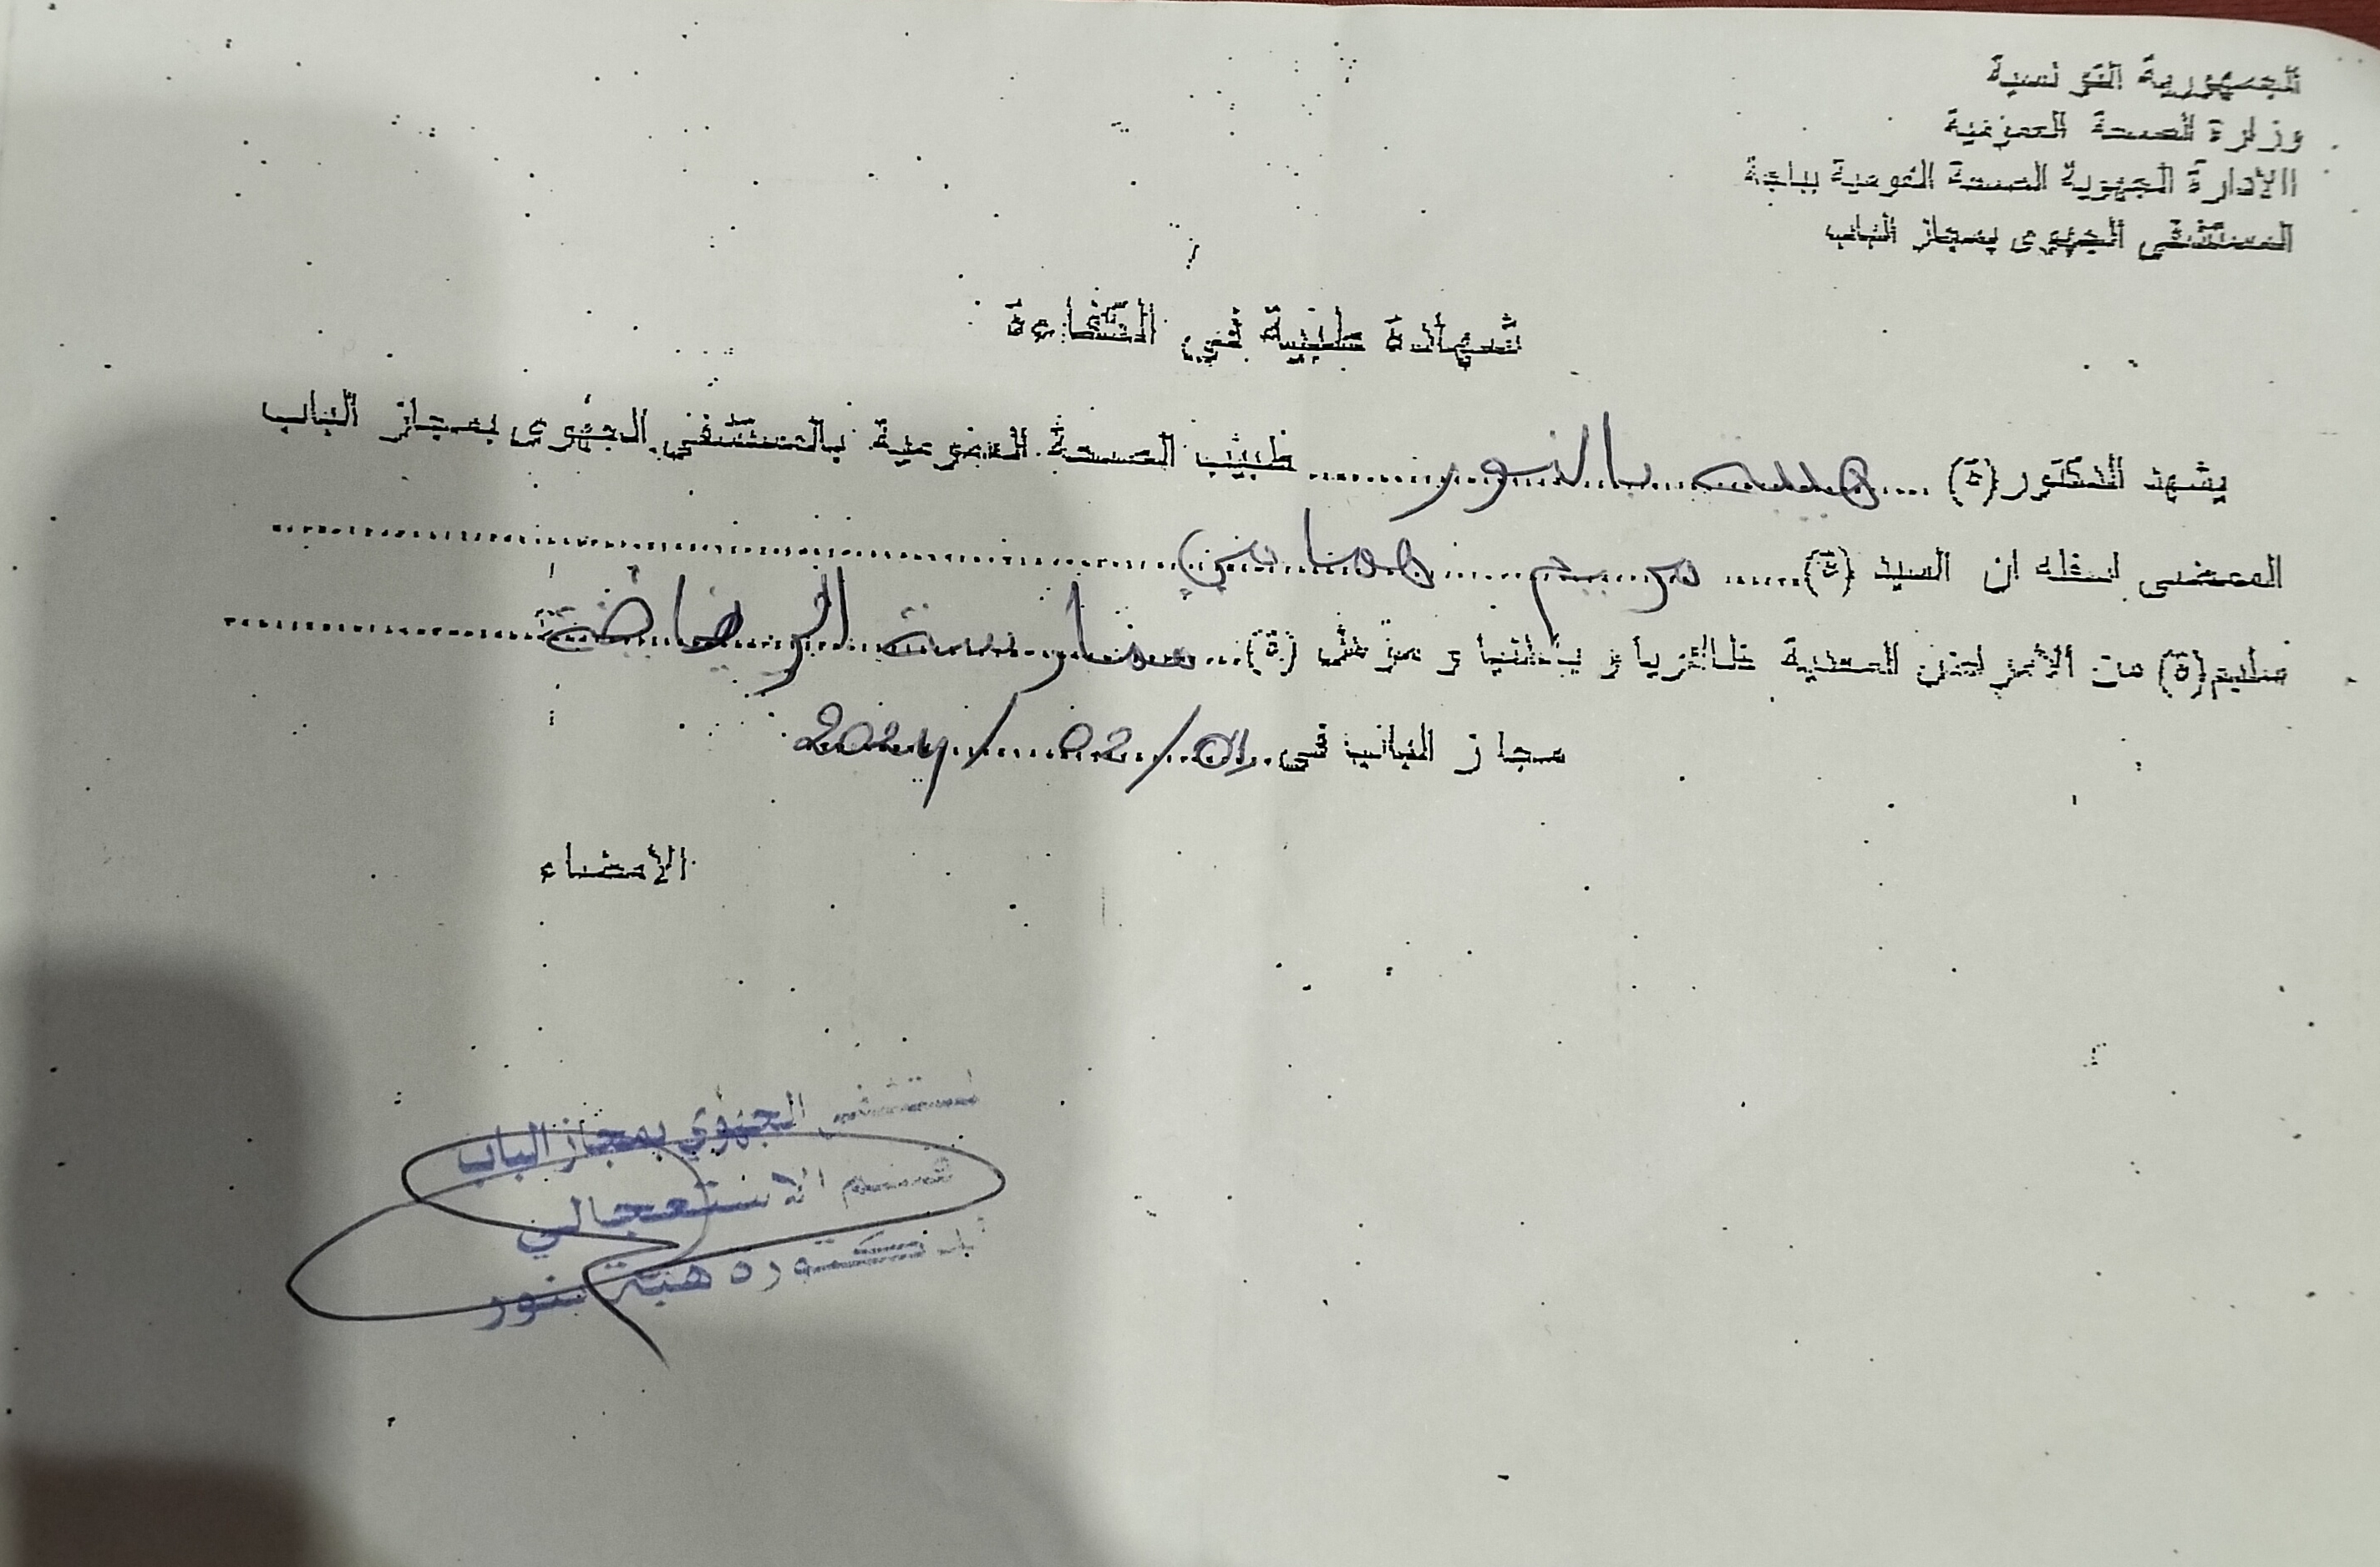 الجمهورية التونسية
وزارة الصحة العمومية
الادارة الجهوية للصحة العمومية بباجة
المستشفى الجهوى بمجاز الباب
شهادة طبية في الكفاءة
يشهد الدكتور(ة) .... هيبة بالنور ........ طبيب الصحة العمومية بالمستشفى الجهوى بمجاز الباب
الممضى اسفله ان السيد (ة)...... مريم ......
سليم(ة) من الأمراض المعدية ظاهريا و باطنيا و مؤهل (ة)... ممارسة الرياضة
مجاز الباب في 01/02/2024
الأمضاء
لمستشفى الجهوي بمجاز الباب
قسم الاستعجالي
الدكتورة هبة بنور